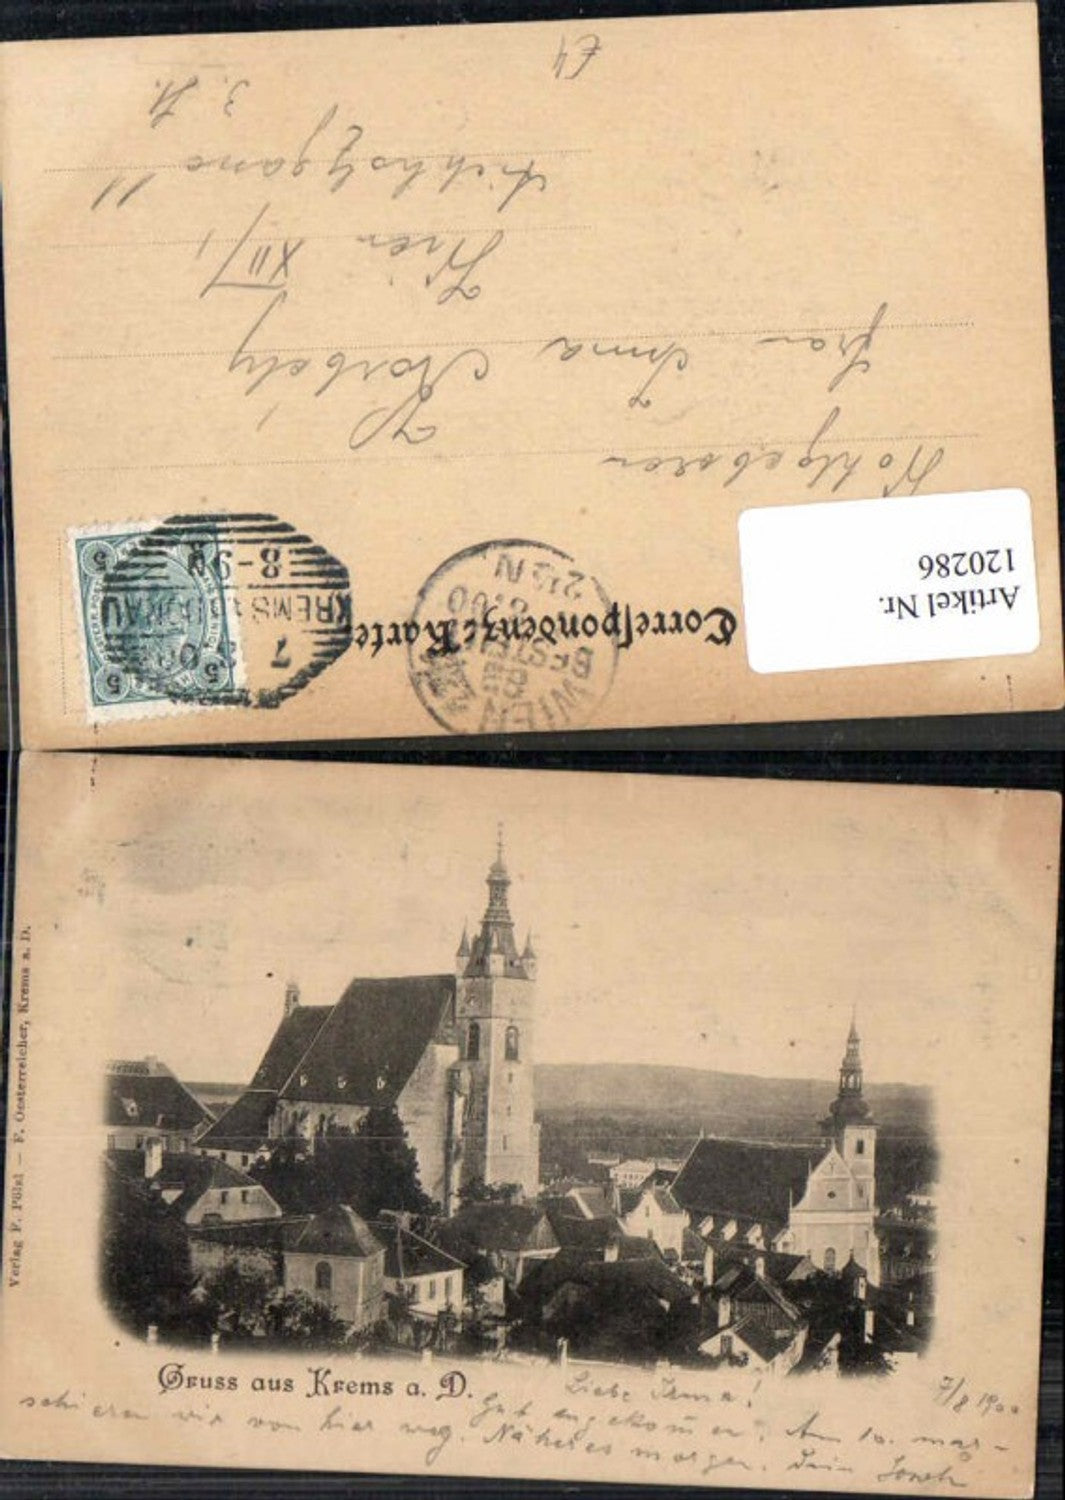 Artikel Nr.
120286
Correspondenz-Karte
7
KREMS
8-9 N
5
5
5
WIEN
BESTELLT
8.00
2½ N
Wohlgeboren
Frau Irma
Wien XII/1
11
3. St.
Verlag F. Pölzl — F. Oesterreicher, Krems a. D.
Gruss aus Krems a. D.
7/8 1900
Liebe Irma!
Gut angekommen. Am 10. mar-
schieren wir von hier weg. Näheres morgen. Dein